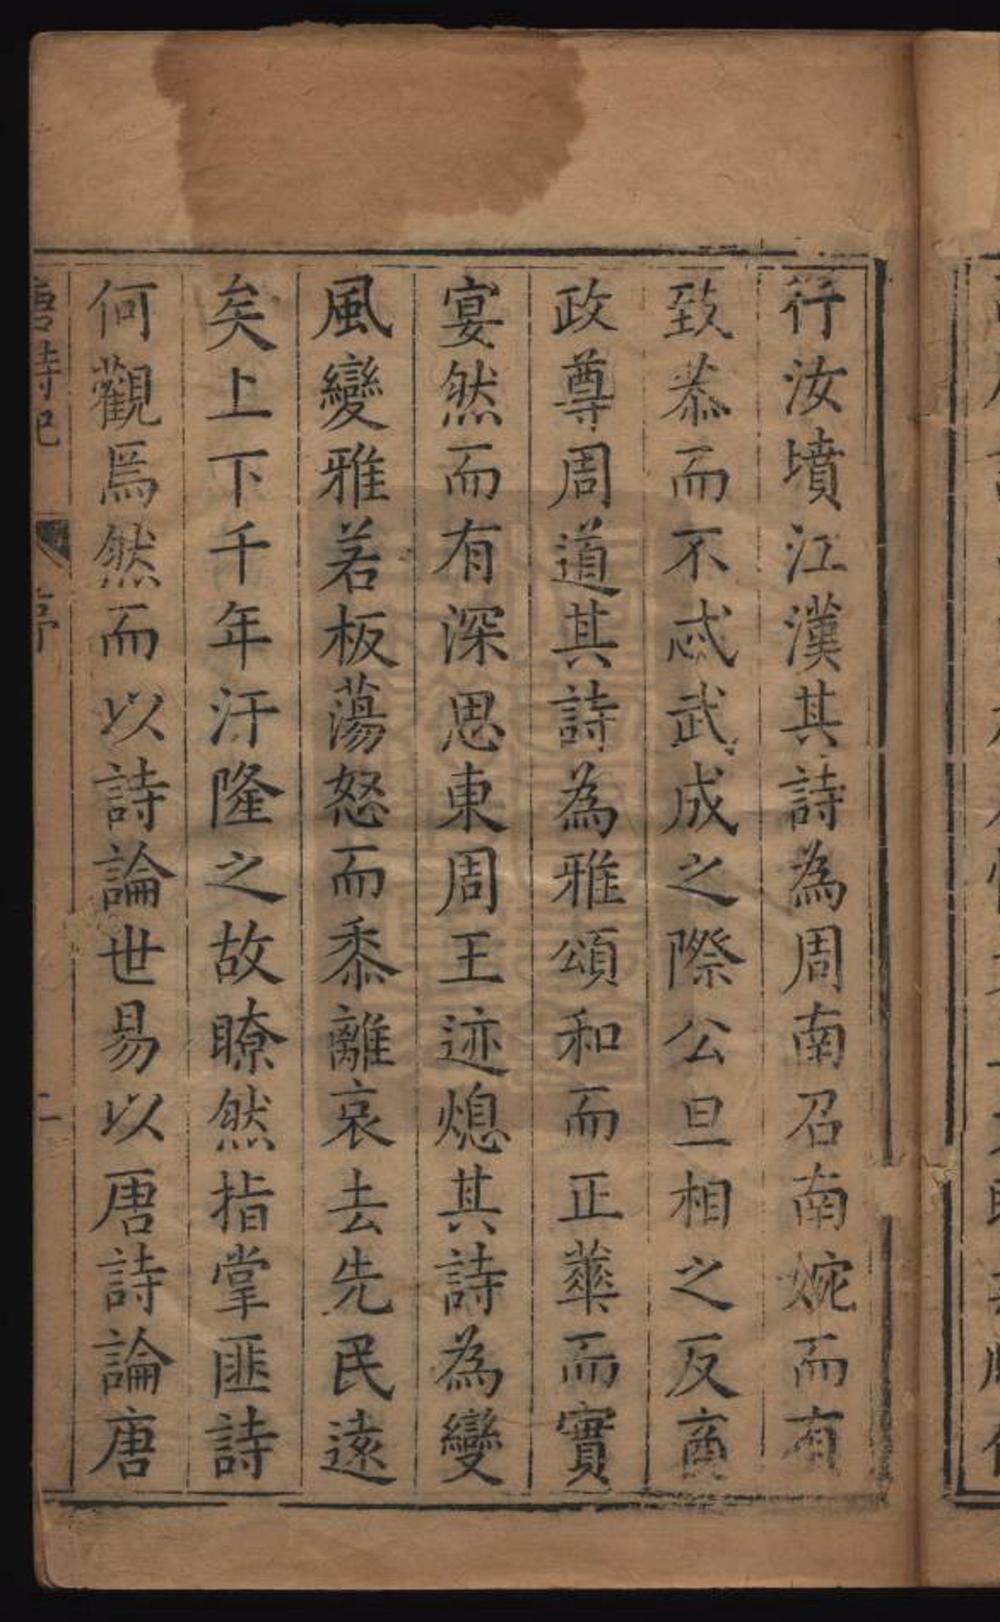 行汝墳江漢其詩為周南召南婉而有
致恭而不忒武成之際公旦相之反商
政尊周道其詩為雅頌和而正華而實
宴然而有深思東周王迹熄其詩為變
風變雅若板蕩怒而黍離哀去先民遠
矣上下千年汙隆之故瞭然指掌匪詩
何觀焉然而以詩論世易以唐詩論唐
唐詩紀 序 二